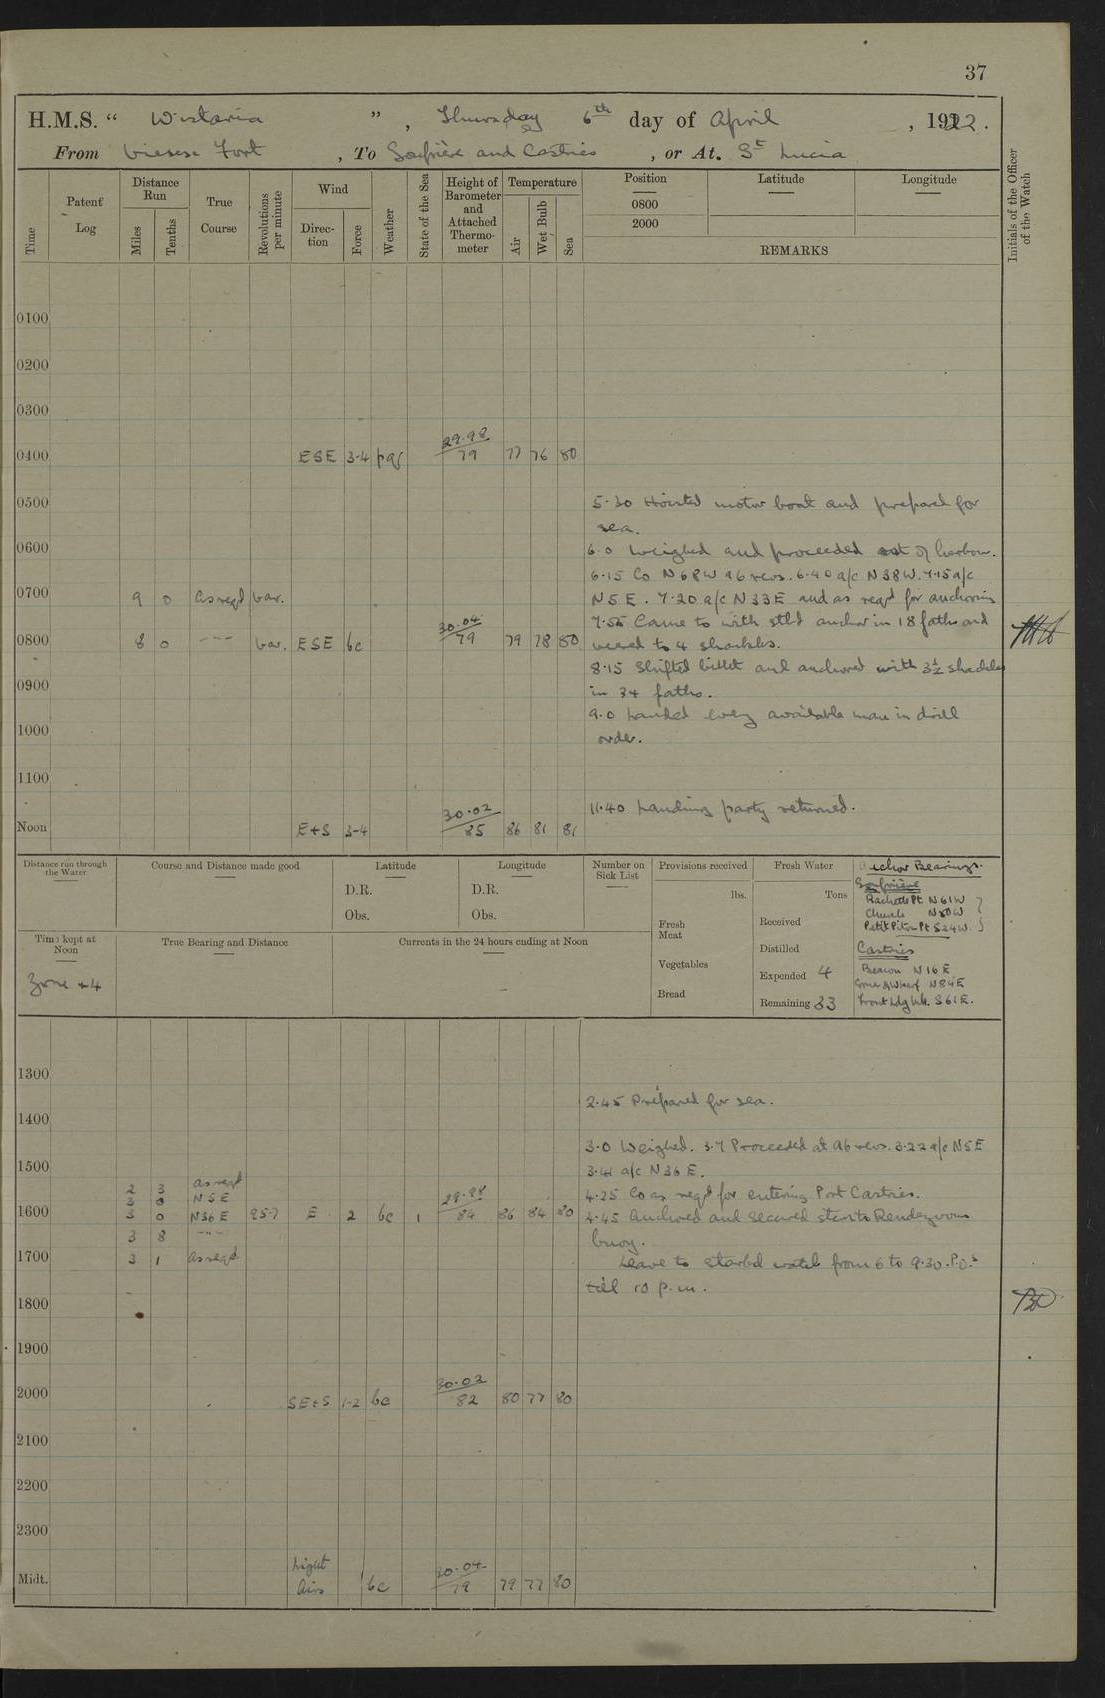 37
H.M.S. “ Wistaria ” , Thursday 6th day of April , 1922.
From Vieux Fort , To Soufrière and Castries , or At. St Lucia
Time
Patent Log
Distance Run
Miles
Tenths
True Course
Revolutions per minute
Wind
Direction
Force
Weather
State of the Sea
Height of Barometer and Attached Thermometer
Temperature
Air
Wet Bulb
Sea
Position
0800
2000
Latitude
Longitude
REMARKS
Initials of the Officer of the Watch
0100
0200
0300
0400 ESE 3-4 29.98 79 77 76 80
0500 5.30 Hoisted motor boat and prepared for
sea.
0600 6.0 Weighed and proceeded out of harbour.
6.15 Co N68W 96 revs. 6.40 a/c N38W. 7.15 a/c
0700 9 0 as reqd var. N5E. 7.20 a/c N33E and as reqd for anchoring
7.55 Came to with stbd anchor in 18 faths and
0800 8 0 -- var. ESE bc 30.04 79 79 78 80 veered to 4 shackles.
8.15 Shifted billet and anchored with 3½ shackles
0900 in 34 faths.
9.0 Landed every available man in drill
1000 order.
1100
11.40 Landing party returned.
Noon E+S 3-4 30.02 85 86 81 81
Distance run through the Water
Course and Distance made good
Latitude
D.R.
Obs.
Longitude
D.R.
Obs.
Number on Sick List
Provisions received
lbs.
Fresh Meat
Vegetables
Bread
Fresh Water
Tons
Received
Distilled
Expended 4
Remaining 33
Anchor Bearings.
Soufrière
Rachette Pt N61W
Church N80W
Petit Piton Pt S24W.
Castries
Beacon N16E
Corner of Wharf N84E
Front Ldg Mk. S61E.
Time kept at Noon
Zone +4
True Bearing and Distance
Currents in the 24 hours ending at Noon
1300
2.45 Prepared for sea.
1400
3.0 Weighed. 3.7 Proceeded at 96 revs. 3.22 a/c N5E
1500 3.41 a/c N36E.
2 3 as reqd
3 0 N5E 4.25 Co as reqd for entering Port Castries.
1600 3 0 N36E 95.7 E 2 bc 1 29.98 84 86 84 80 4.45 Anchored and secured stern to Rendezvous
3 8 --- buoy.
1700 3 1 as reqd Leave to starbd watch from 6 to 9.30. P.O.s
till 10 p.m.
1800
1900
2000 SE+S 1-2 bc 30.03 82 80 77 80
2100
2200
2300
Midt. Light Airs bc 30.04 79 79 77 80